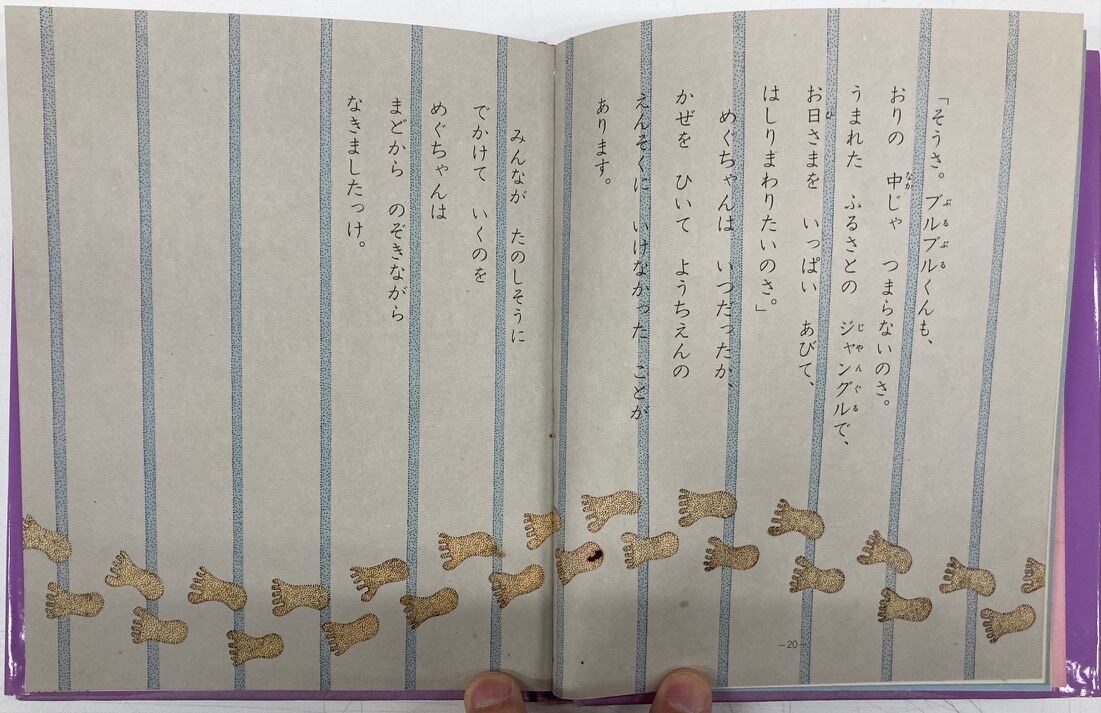 「そうさ。ブルブルくんも、
おりの　中じゃ　つまらないのさ。
うまれた　ふるさとの　ジャングルで、
お日さまを　いっぱい　あびて、
はしりまわりたいのさ。」
めぐちゃんは　いつだったか、
かぜを　ひいて　ようちえんの
えんそくに　いけなかった　ことが
あります。
みんなが　たのしそうに
でかけて　いくのを
めぐちゃんは
まどから　のぞきながら
なきましたっけ。
—20—